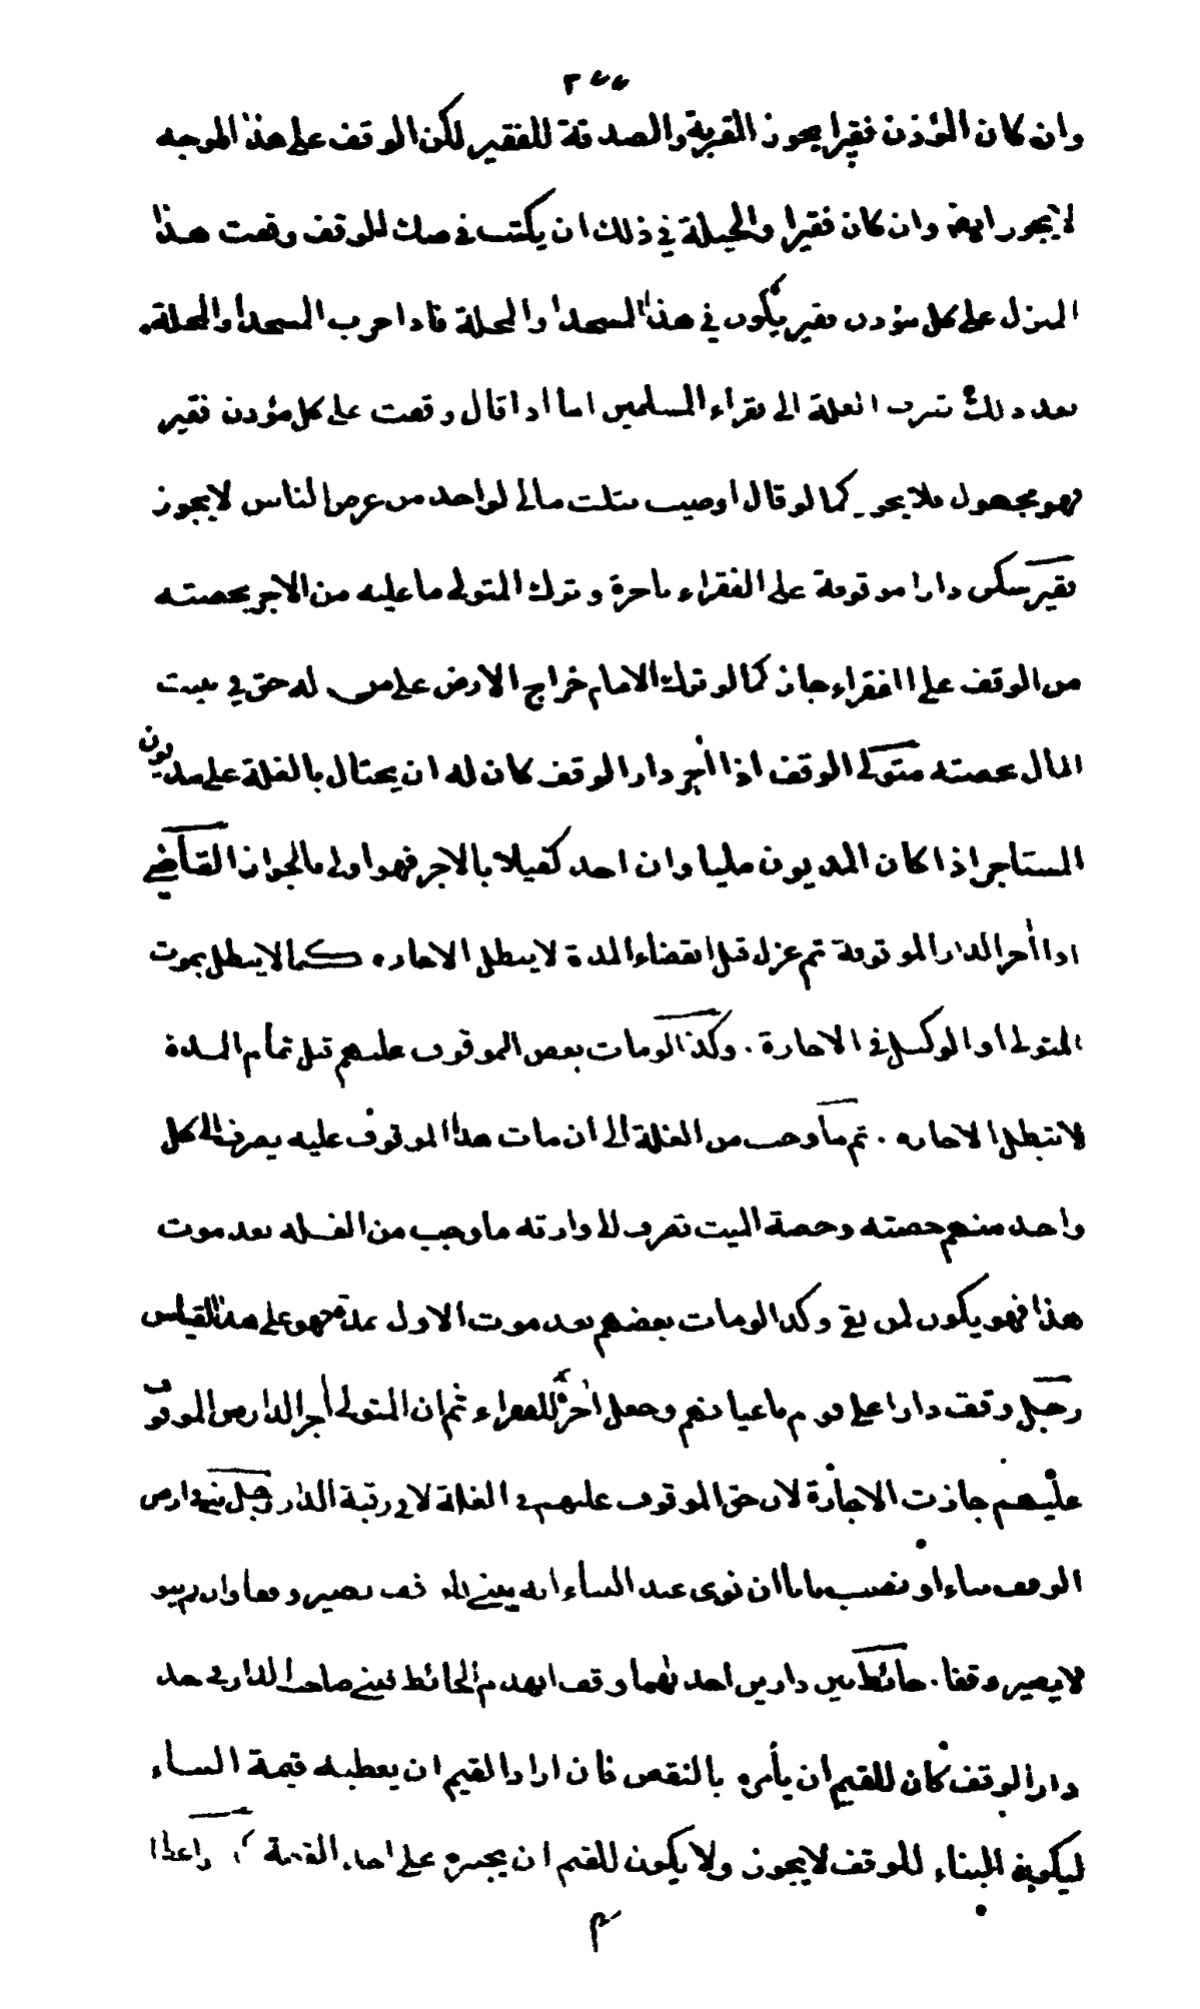 ٢٧٧
وان كان المؤذن فقيرا يجوز القربة والصدقة للفقير لكن الوقف على هذا الوجه
لا يجوز ايضا وان كان فقيرا والحيلة في ذلك ان يكتب في صك الوقف وقفت هذا
المنزل على كل مؤذن فقير يكون في هذا المسجد او المحلة فاذا خرب المسجد او المحلة
بعد ذلك تصرف الغلة الى فقراء المسلمين اما اذا قال وقفت على كل مؤذن فقير
فهو مجهول فلا يجوز كما لو قال اوصيت بثلث مالي لواحد من عرض الناس لا يجوز
فقير سكن دارا موقوفة على الفقراء باجرة وترك المتولى ما عليه من الاجر بحصته
من الوقف على الفقراء جاز كما لو ترك الامام خراج الارض على من له حق في بيت
المال بحصته متولى الوقف اذا آجر دار الوقف كان له ان يحتال بالغلة على مديون
المستاجر اذا كان المديون مليا وان اخذ كفيلا بالاجر فهو اولى بالجواز القاضي
اذا آجر الدار الموقوفة ثم عزل قبل انقضاء المدة لا يبطل الاجاره كما لا يبطل بموت
المتولى او الوكيل في الاجارة . وكذا لو مات بعض الموقوف عليهم قبل تمام المدة
لا تبطل الاجاره . ثم ما وجب من الغلة الى ان مات هذا الموقوف عليه يصرف الى كل
واحد منهم حصته وحصة الميت تصرف الى وارثه ما وجب من الغله بعد موت
هذا فهو يكون لمن بقي وكذا لو مات بعضهم بعد موت الاول فهو على هذا القياس
رجل وقف دارا على قوم باعيانهم وجعل اخره للفقراء ثم ان المتولى آجر الدار من الموقوف
عليهم جازت الاجارة لان حق الموقوف عليهم في الغلة لا في رقبة الدار رجل بنى في ارض
الوقف بناء او نصب بابا ان نوى عند البناء انه يبني للوقف يصير وقفا وان لم ينو
لا يصير وقفا . حائط بين دارين احدهما وقف انهدم الحائط فبنى صاحب الدار في حد
دار الوقف كان للقيم ان يأمره بالنقض فان اراد القيم ان يعطيه قيمة البناء
ليكون البناء للوقف لا يجوز ولا يكون للقيم ان يجبره على اخذ القيمة